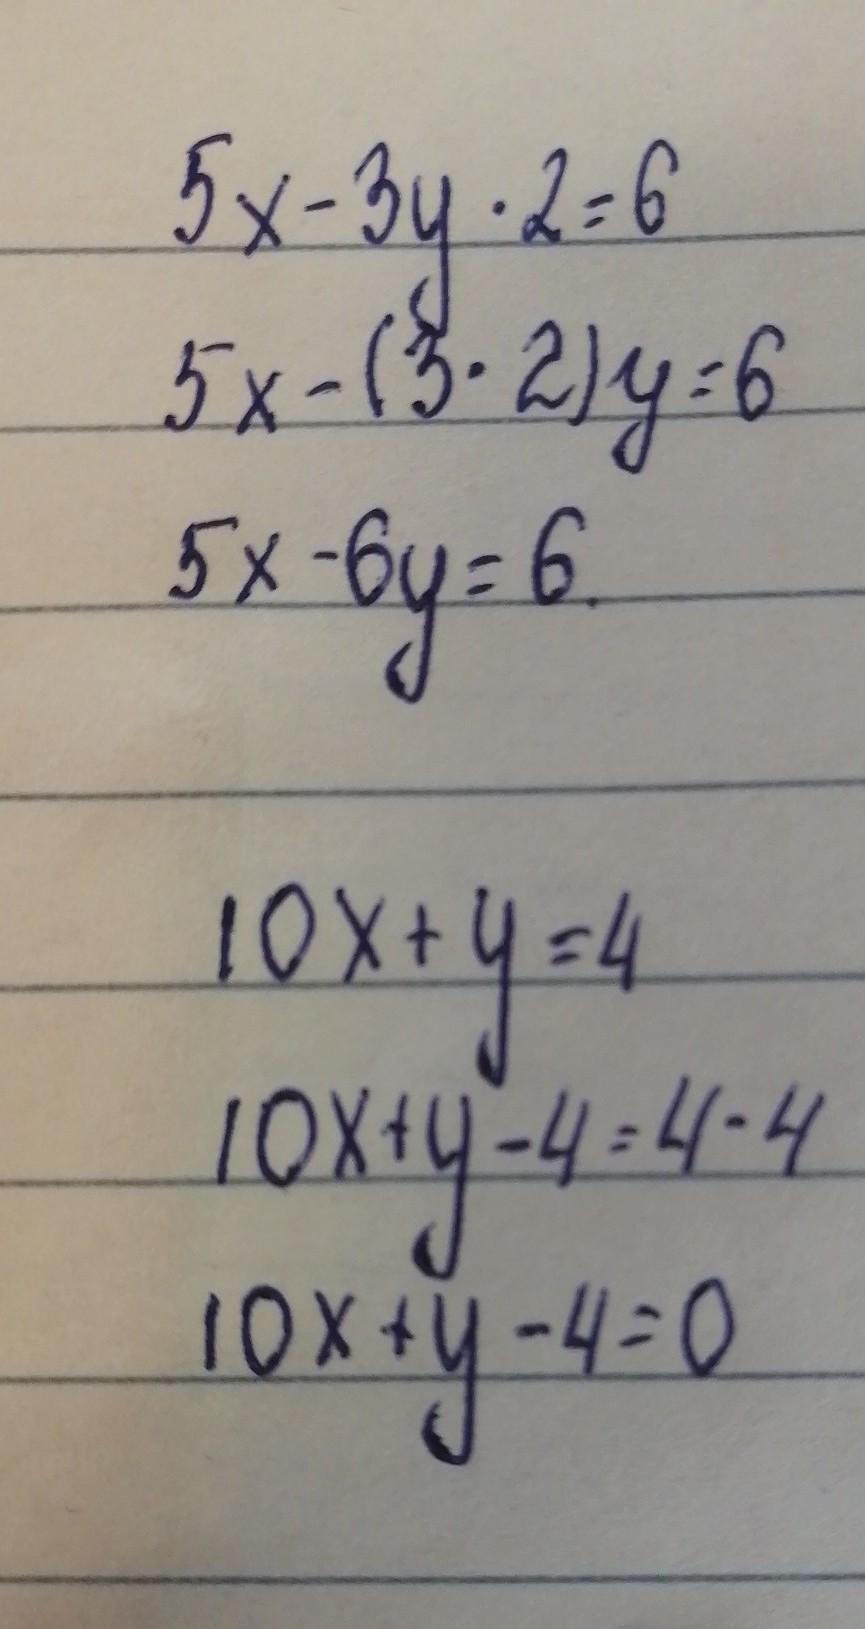 5x - 3y · 2 = 6
5x - (3 · 2) y = 6
5x - 6y = 6.
10x + y = 4
10x + y - 4 = 4 - 4
10x + y - 4 = 0